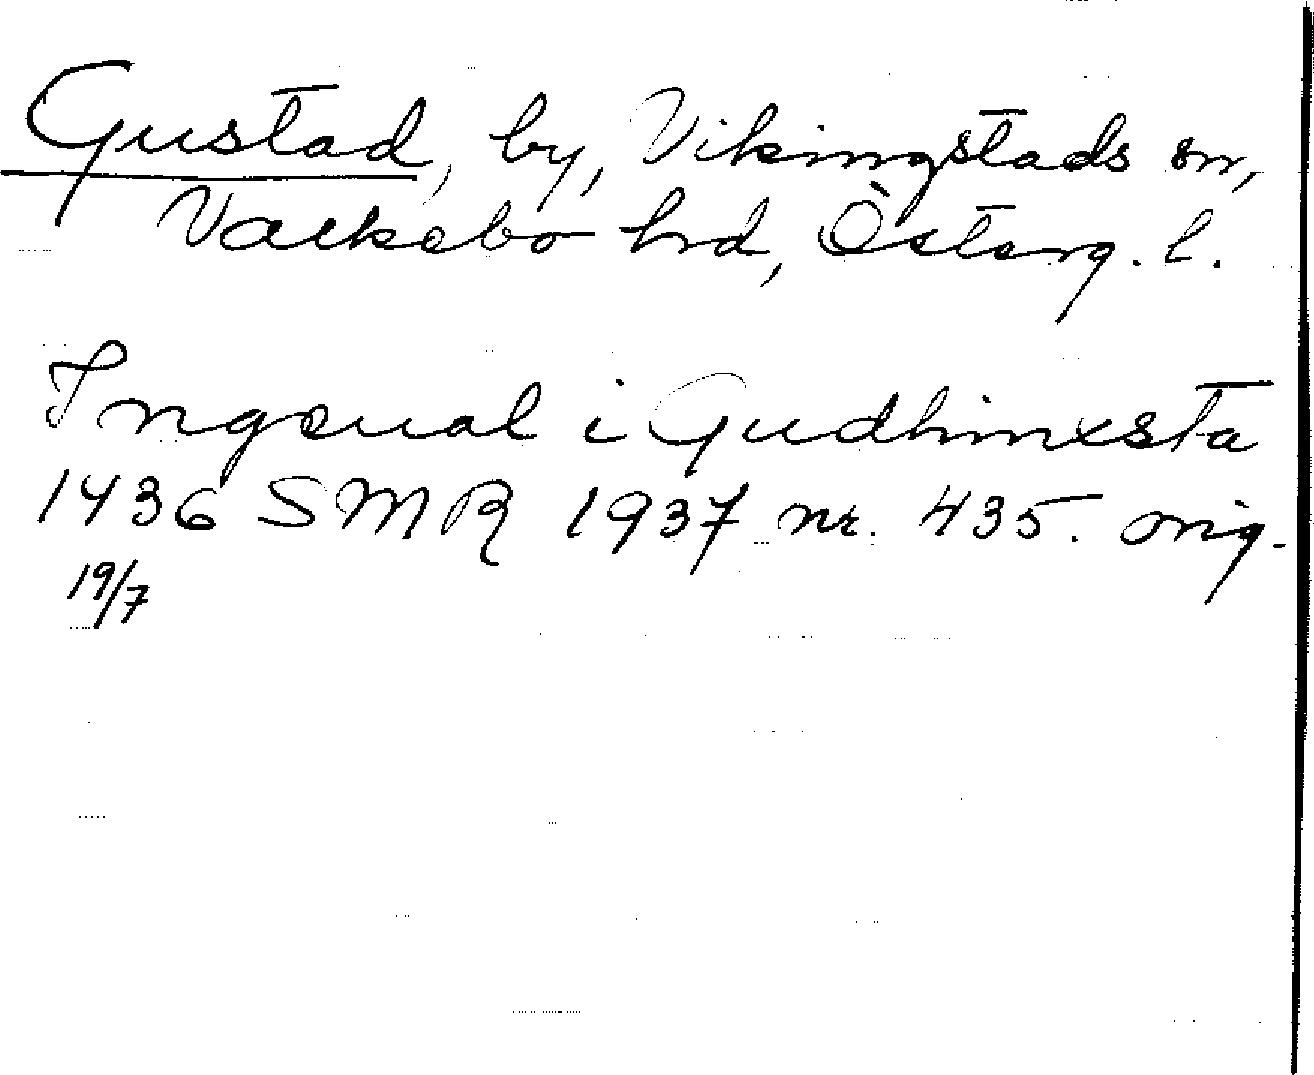 Gustad, by, Vikingstads sn,
Valkebo hrd, Österg. l.
Ingeual i Gudhinxsta
1436 SMR 1937 nr. 435. orig.
19/7